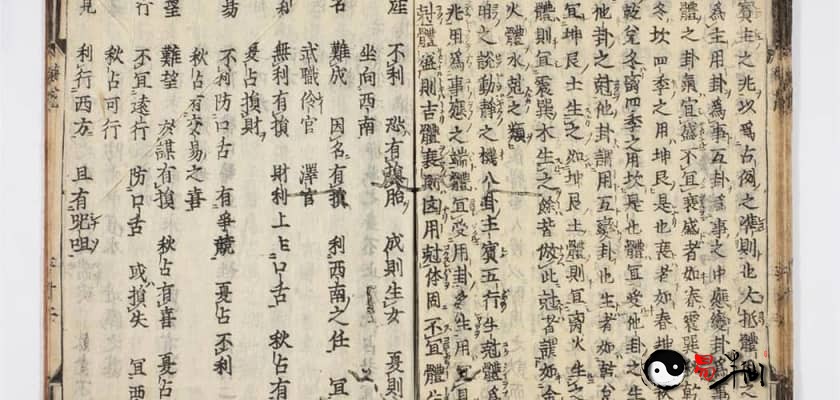 賓主之兆以為占例之準則也大抵體用之
為主用卦為事互卦為事之中應變卦為事
體之卦氣宜盛不宜衰盛者如春震巽秋乾
冬坎四季之用坤艮是也衰者如春坤秋
乾兌冬离四季之用坎是也體宜受他卦之生
他卦之尅他卦謂用互變卦也生者如乾兌
宜坤艮土生之如坤艮體則宜离火生之
體則宜震巽水生之餘皆倣此尅者謂如金
火體水尅之類
明之談動靜之機八卦主賓五行生尅體為
兆用為事應之端體宜受用卦之生用宜
尅體盛則吉體衰則凶用尅体固不宜體
産 不利 恐有損胎 成則生女 夏則
坐向西南
名 難成 因名有損 利西南之任 宜
武職伶官 澤官
利 無利有損 財利上主口舌 秋占有
夏占損財
易 不利防口舌 有爭競 夏占不利
秋占有交易之喜
望 難望 於謀有損 秋占有喜 夏占
不宜遠行 防口舌 或損失 宜西
秋占可行
見 利行西方 且有咒咀